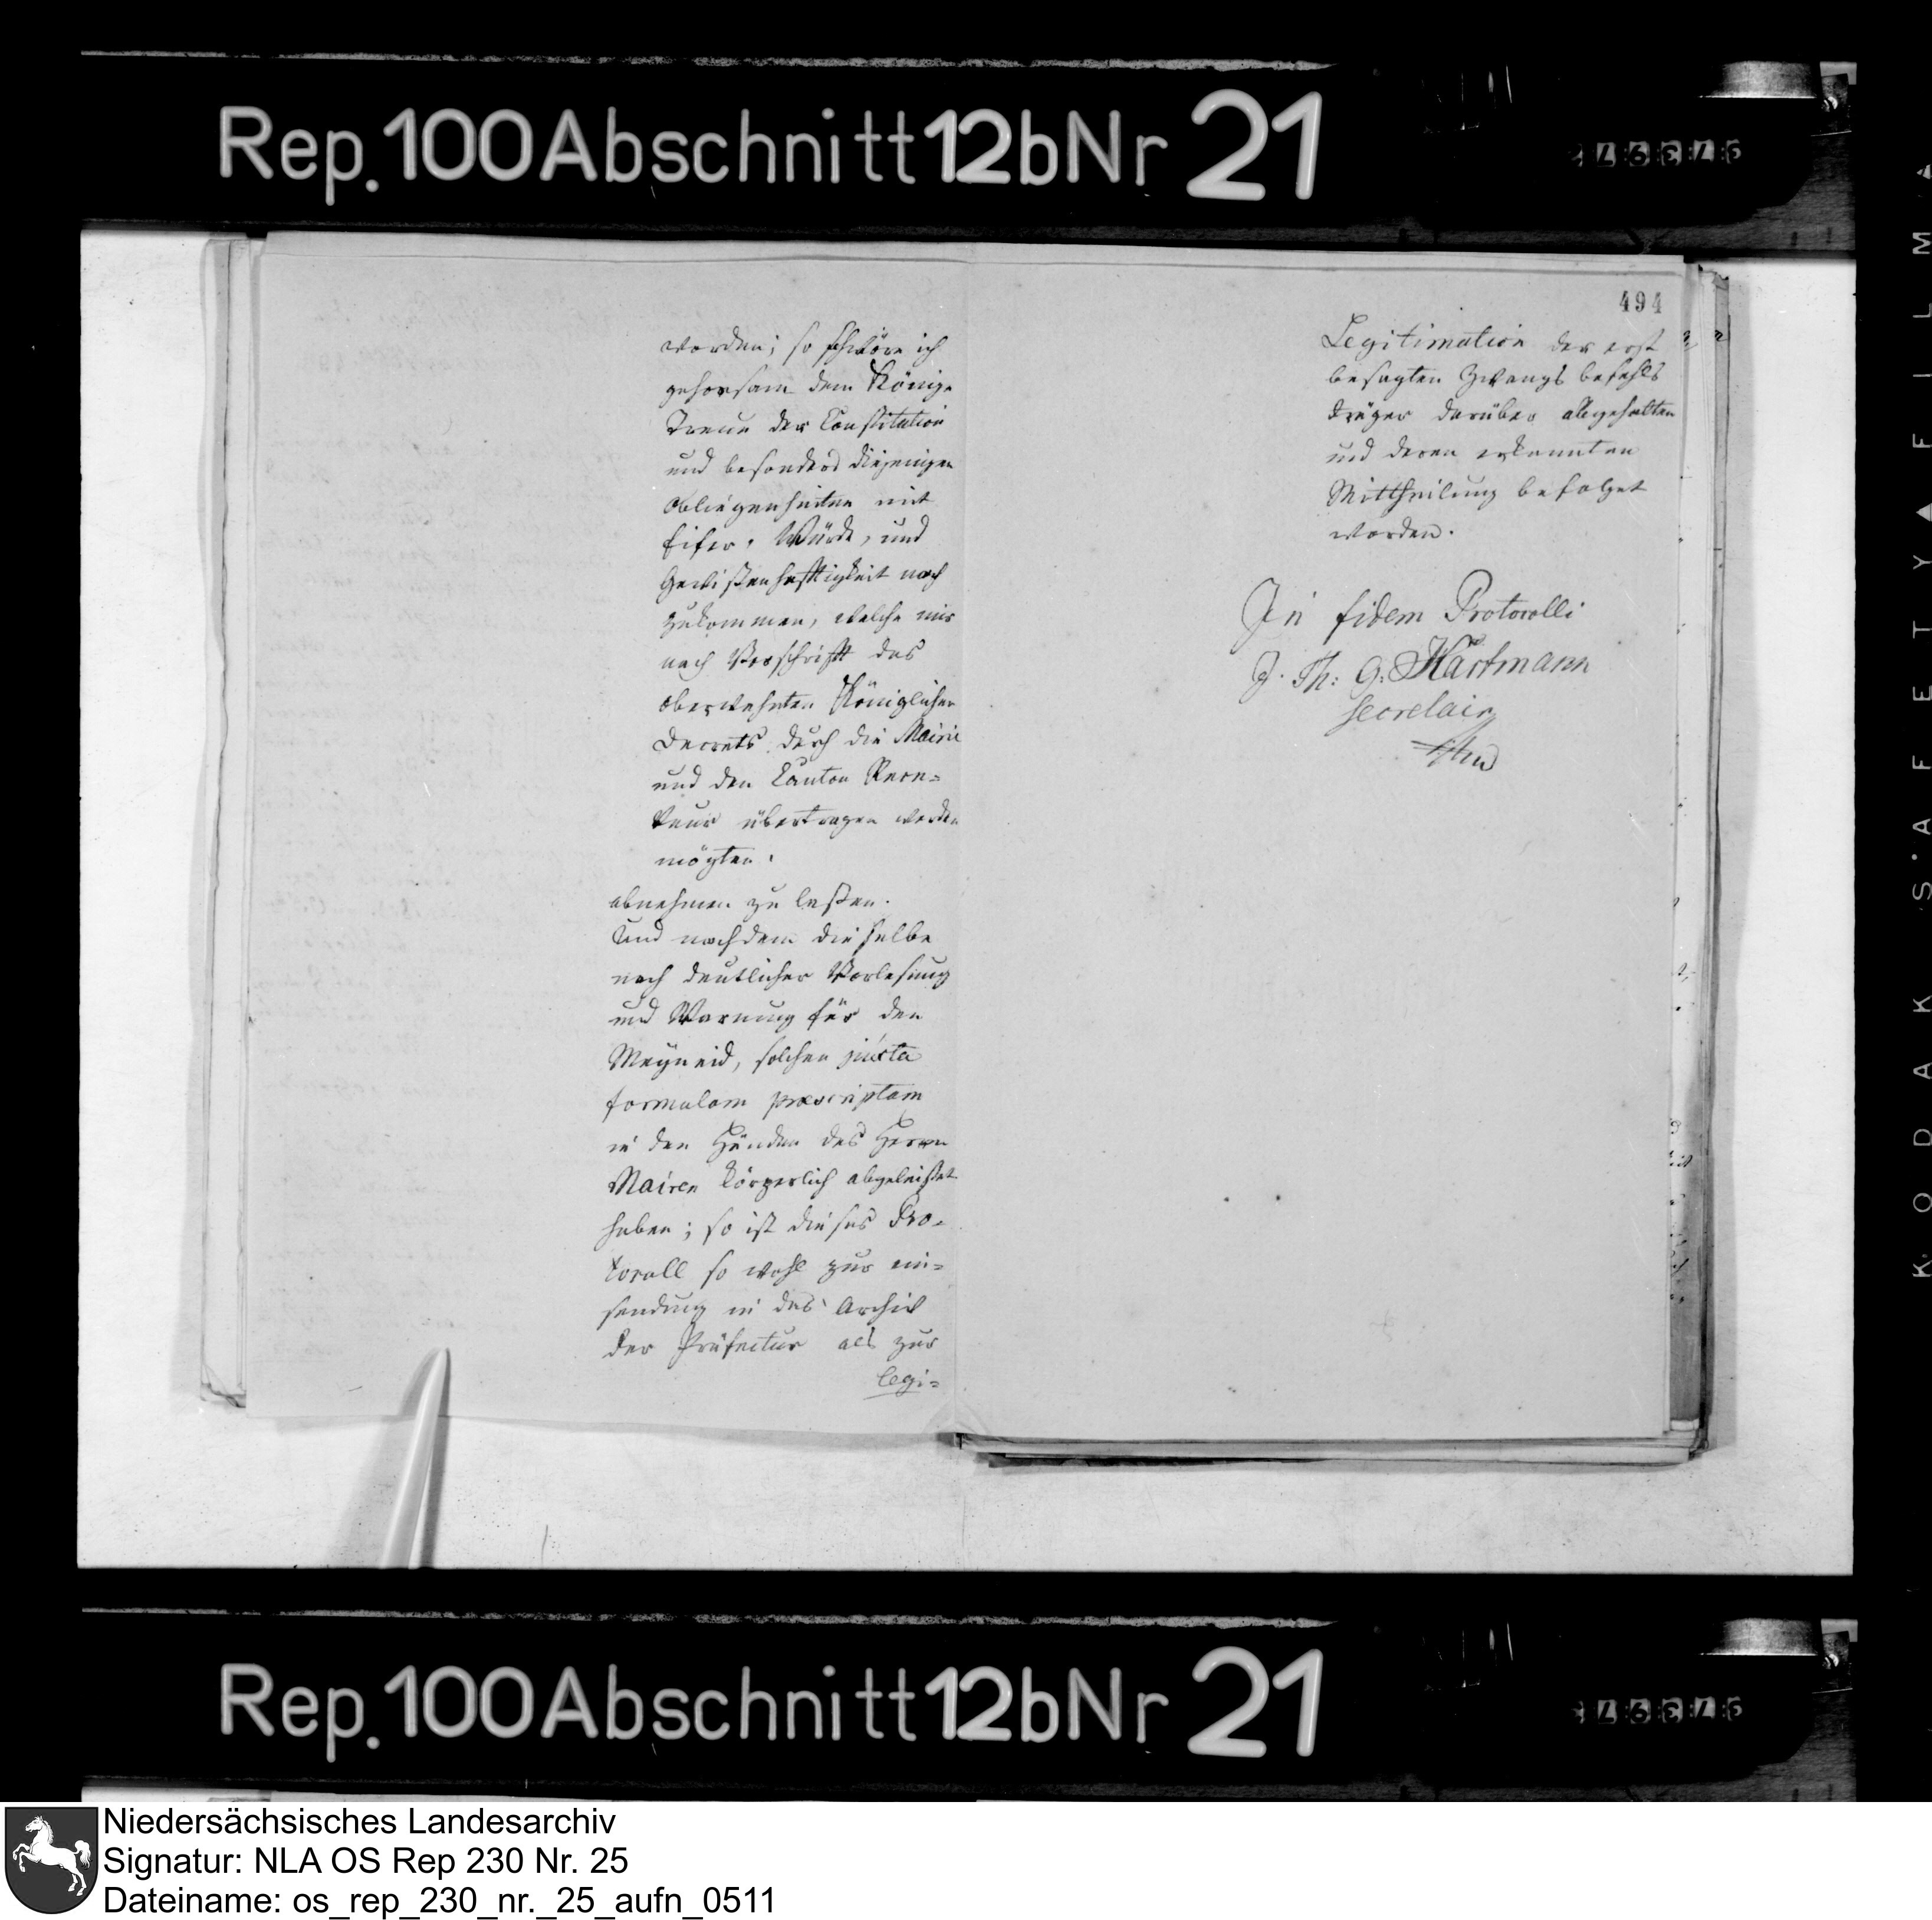 Rep. 100 Abschnitt 12b Nr 21
worden; so schwöre ich
gehorsam dem Könige
Treue der Constitution
und besonders diejenigen
Obliegenheiten mit
Eifer, Würde, und
Gewißenhafftigkeit nach
zukommen, welche mir
nach Vorschrifft des
oberwehnten Königlichen
Decrets durch die Mairie
und den Canton Recep=
teur übertragen werden
mögten.
abnehmen zu laßen.
Und nachdem dieselbe
nach deutlicher Vorlesung
und Warnung für den
Meyneid, solchen juxta
formulam praescriptam
in den Händen des Herrn
Mairen körperlich abgeleistet
haben; so ist dieses Pro=
tocoll so wohl zur ein=
sendung in das Archiv
der Präfectur als zur
legi=
494
Legitimation der erst
besagten Zwangs befehls
träger darüber abgehalten
und deren erkannten
Mittheilung befolget
worden.
In fidem Protocolli
J. Th: G: Hartmann
Secretair
KODAK SAFETY FILM
Rep. 100 Abschnitt 12b Nr 21
Niedersächsisches Landesarchiv
Signatur: NLA OS Rep 230 Nr. 25
Dateiname: os_rep_230_nr._25_aufn_0511